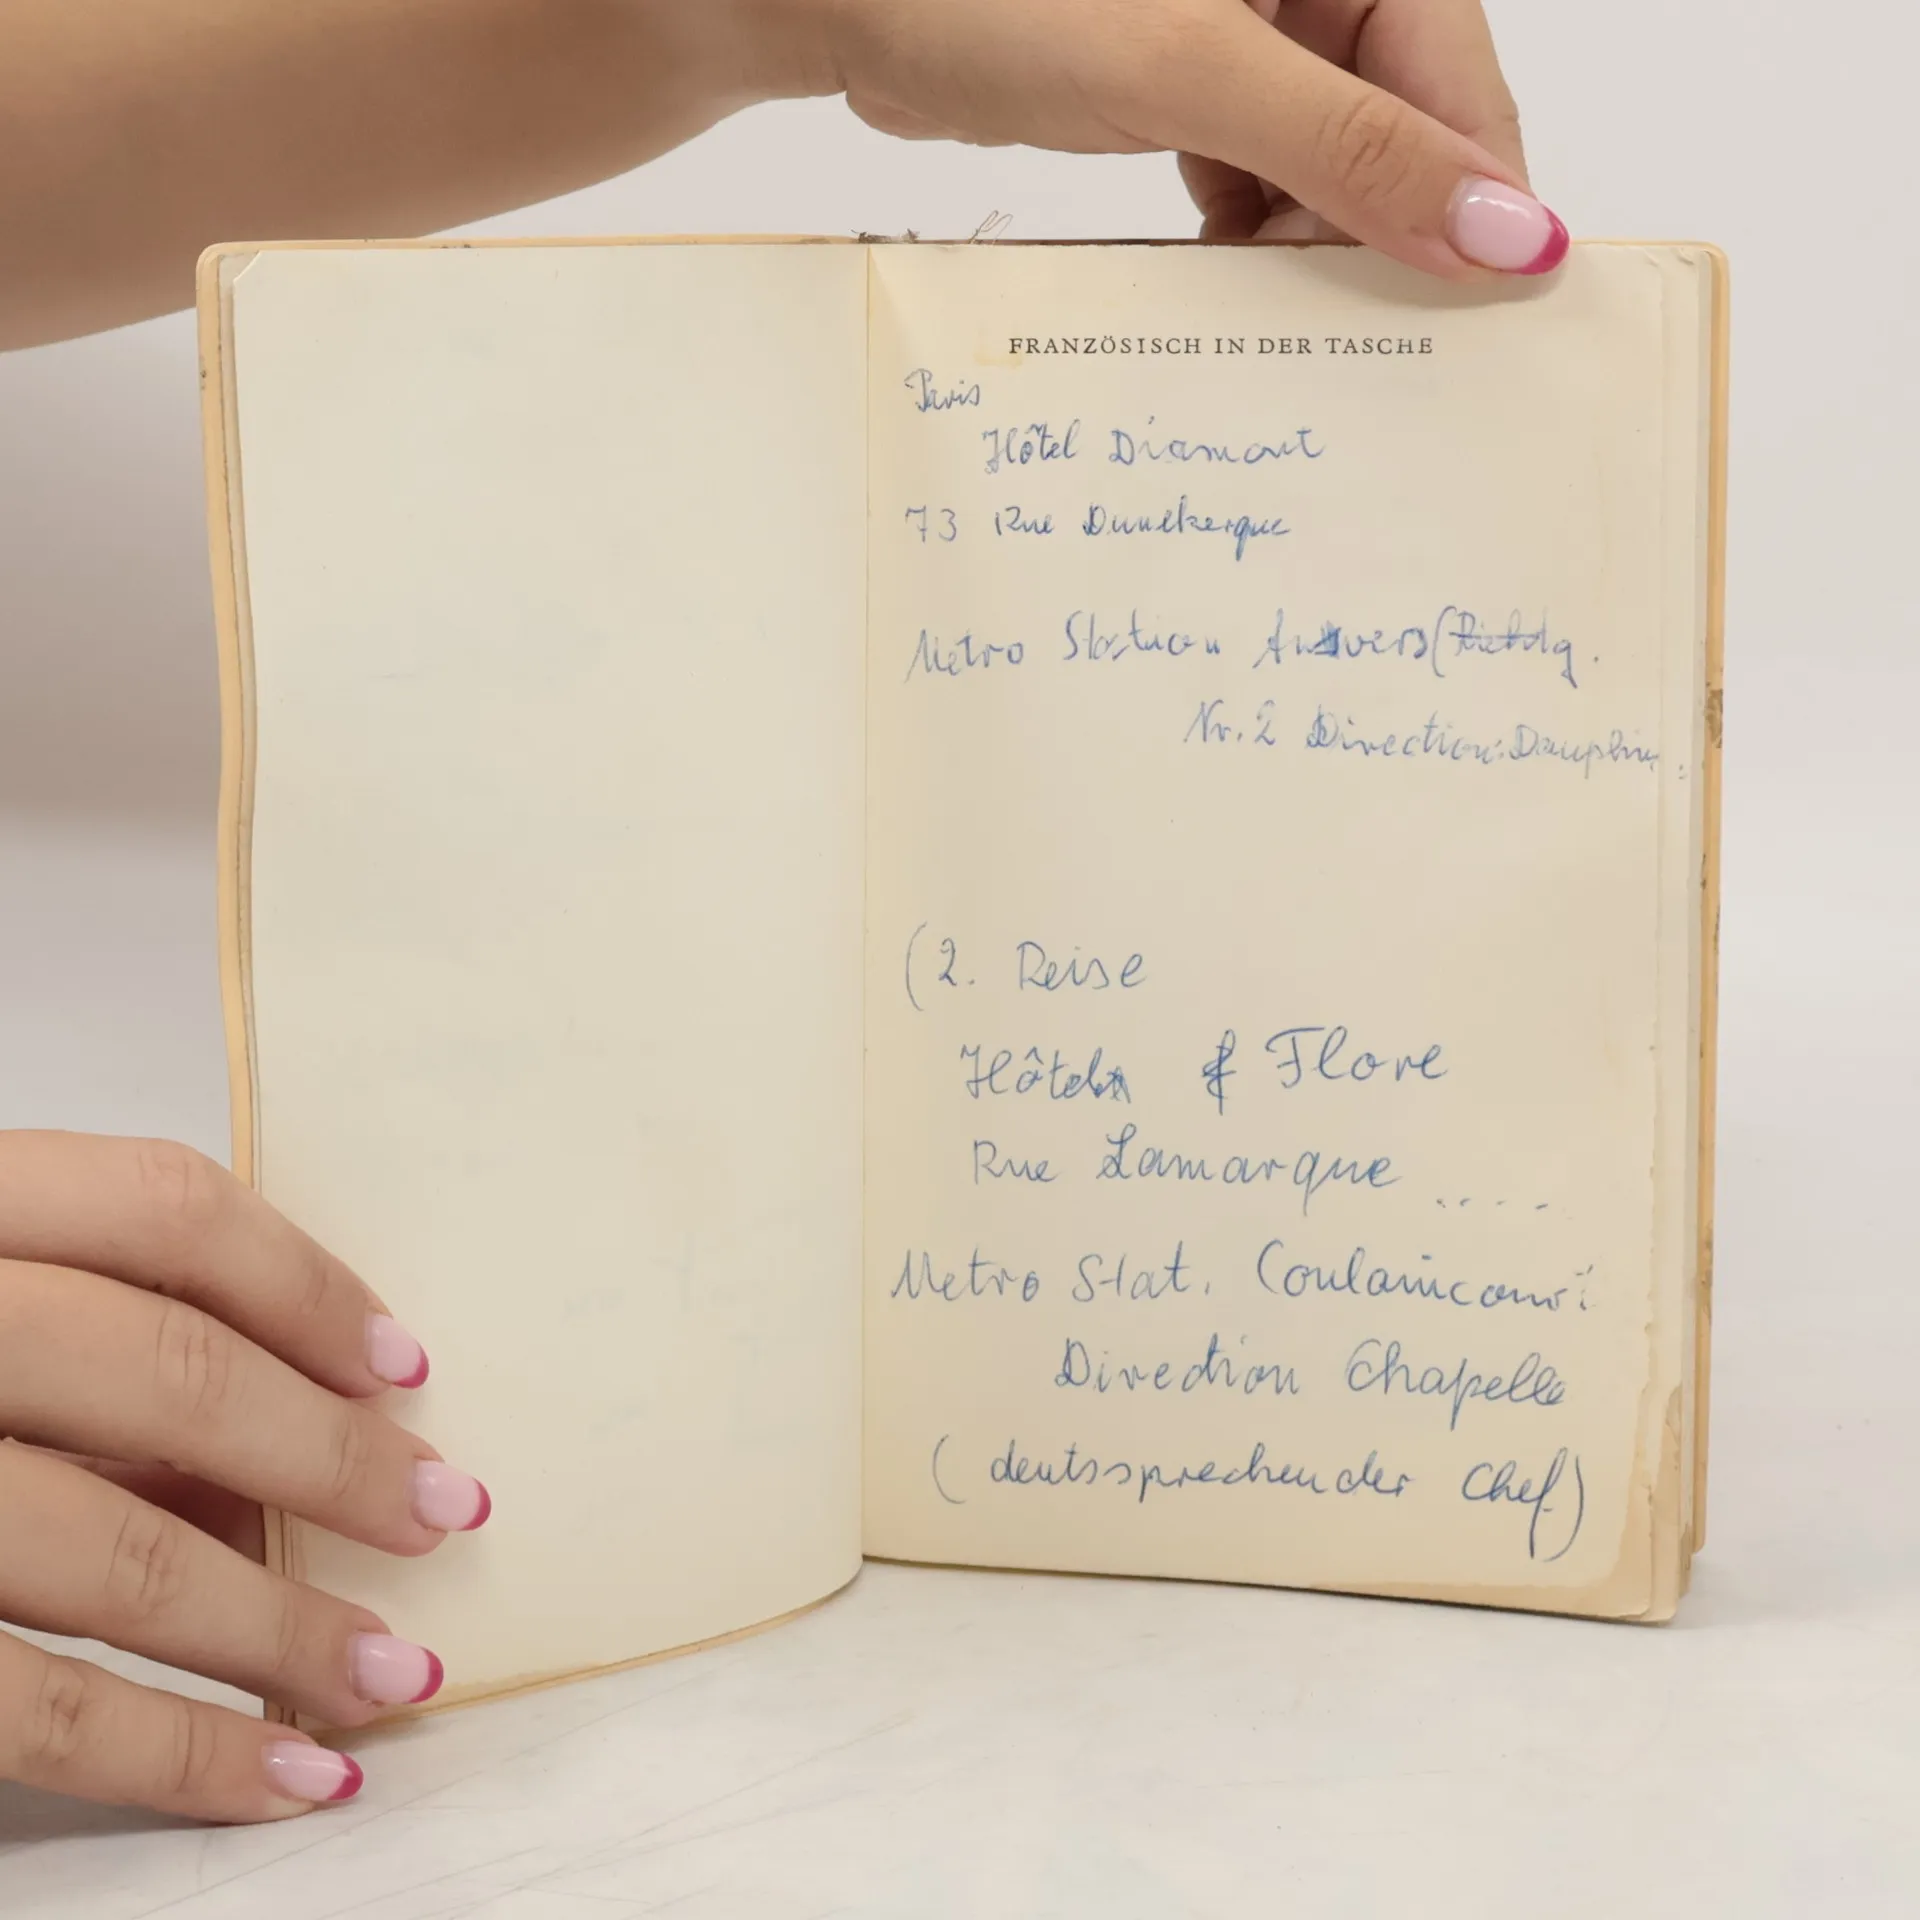 FRANZÖSISCH IN DER TASCHE
Paris
Hôtel Diamant
73 Rue Dunkerque
Metro Station Anvers (Richtg.
Nr. 2 Direction: Dauphine
(2. Reise
Hôtel Flore
Rue Lamarque ....
Metro Stat. Coulaincour
Direction Chapelle
(deutssprechender Chef)